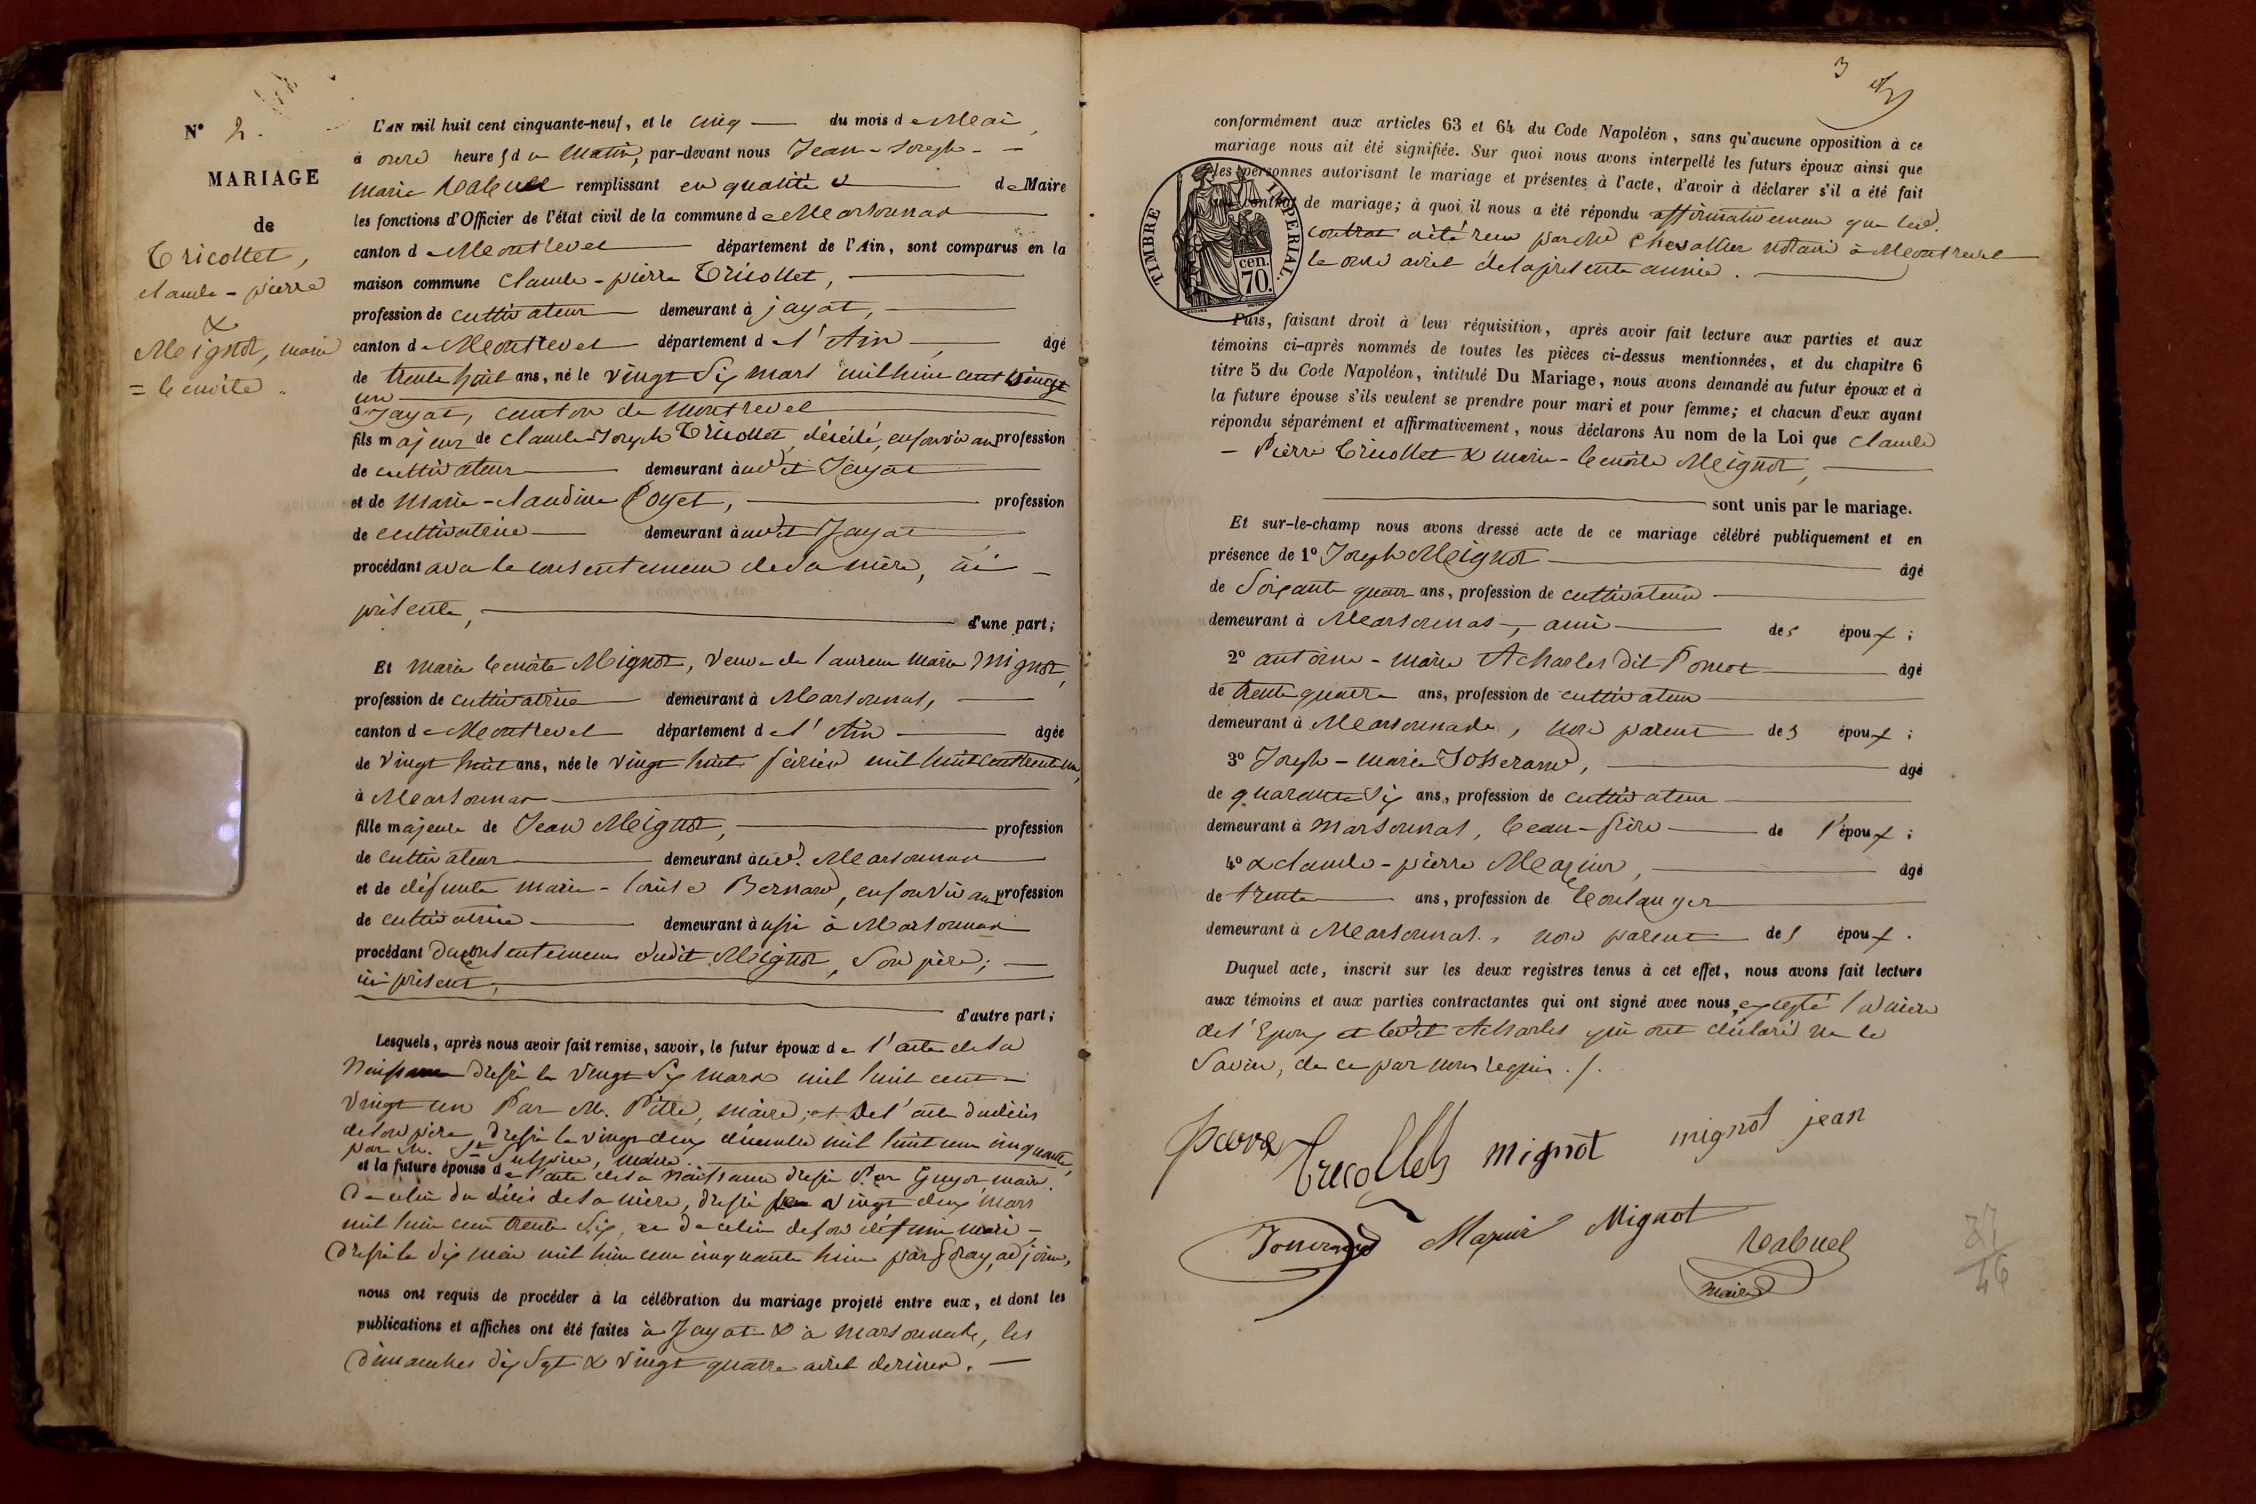 N° 2.
MARIAGE
de
Tricottet,
claude-pierre
&
Meignot, marie
= benoite.
L'AN mil huit cent cinquante-neuf, et le cinq du mois de Mai,
à onze heures du Matin, par-devant nous Jean-Joseph-
marie Rabuel remplissant en qualité de Maire
les fonctions d'Officier de l'état civil de la commune de Marsonnas
canton de Montrevel département de l'Ain, sont comparus en la
maison commune Claude-pierre Tricottet,
profession de cultivateur demeurant à jayat,
canton de Montrevel département de l'Ain, âgé
de trente huit ans, né le vingt six mars mil huit cent vingt
un
à Jayat, canton de Montrevel
fils majeur de claude-Joseph Tricottet, décédé, en son vivant profession
de cultivateur demeurant audit Jayat
et de Marie-claudine Poget, profession
de cultivatrice demeurant audit Jayat
procédant avec le consentement de sa mère, ici
présente, d'une part;
Et Marie benoite Meignot, veuve de laurent marie Mignot,
profession de cultivatrice demeurant à Marsonnas,
canton de Montrevel département de l'Ain âgée
de vingt huit ans, née le vingt huit février mil huit cent trente un,
à Marsonnas
fille majeure de Jean Meignot, profession
de cultivateur demeurant aud. Marsonnas
et de défunte marie-louise Bernard, en son vivant profession
de cultivatrice demeurant aussi à Marsonnas
procédant du consentement dudit Meignot, son père;
ici présent,
d'autre part;
Lesquels, après nous avoir fait remise, savoir, le futur époux de l'acte de sa
Naissance dressé le vingt six mars mil huit cent
vingt un Par M. Pitte, maire; et de l'acte du décès
de son père, dressé le vingt deux décembre mil huit cent cinquante,
par M. St Sulpice, maire
et la future épouse de l'acte de sa Naissance dressé Par Guyot maire.
De celui du décès de sa mère, dressé le vingt deux mars
mil huit cent trente six, et de celui de son défunt mari
dressé le dix mai mil huit cent cinquante huit par adjoint,
nous ont requis de procéder à la célébration du mariage projeté entre eux, et dont les
publications et affiches ont été faites à Jayat & à Marsonnas, les
Dimanches dix sept & vingt quatre avril dernier.
3
conformément aux articles 63 et 64 du Code Napoléon, sans qu'aucune opposition à ce
mariage nous ait été signifiée. Sur quoi nous avons interpellé les futurs époux ainsi que
les personnes autorisant le mariage et présentes à l'acte, d'avoir à déclarer s'il a été fait
un contrat de mariage; à quoi il nous a été répondu affirmativement que led.
contrat a été reçu par Me Chevallier notaire à Montrevel
le onze avril de la présente année.
TIMBRE IMPÉRIAL.
cen.
70.
Puis, faisant droit à leur réquisition, après avoir fait lecture aux parties et aux
témoins ci-après nommés de toutes les pièces ci-dessus mentionnées, et du chapitre 6
titre 5 du Code Napoléon, intitulé Du Mariage, nous avons demandé au futur époux et à
la future épouse s'ils veulent se prendre pour mari et pour femme; et chacun d'eux ayant
répondu séparément et affirmativement, nous déclarons Au nom de la Loi que Claude
- Pierre Tricottet & marie-benoite Meignot,
sont unis par le mariage.
Et sur-le-champ nous avons dressé acte de ce mariage célébré publiquement et en
présence de 1° Joseph Meignot âgé
de Soixante quatre ans, profession de cultivateur
demeurant à Marsonnas, ami des époux;
2° antoine-marie Acharles dit Poncet âgé
de trente quatre ans, profession de cultivateur
demeurant à Marsonnas, non parent des époux;
3° Joseph-marie Josserand, âgé
de quarante six ans, profession de cultivateur
demeurant à Marsonnas, beau-frère de l'époux;
4° & claude-pierre Mazuir, âgé
de trente ans, profession de boulanger
demeurant à Marsonnas, non parent des époux.
Duquel acte, inscrit sur les deux registres tenus à cet effet, nous avons fait lecture
aux témoins et aux parties contractantes qui ont signé avec nous, excepté la mère
de l'Epoux et ledit Acharles qui ont déclaré ne le
savoir, de ce par nous requis ./.
pierre Tricollet mignot mignot jean
Josserand Mazuir Mignot Rabuel
maire